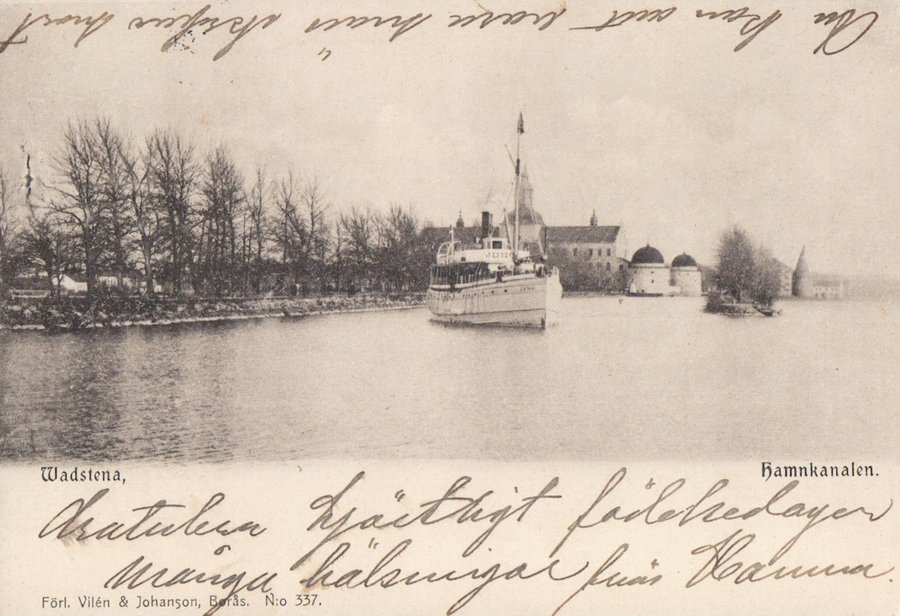 Du kan vara snäll skrifva snart
Wadstena,
Hamnkanalen.
Gratulera hjärtligt födelsedagen
många hälsningar från Hanna.
Förl. Vilén & Johanson, Borås. N:o 337.